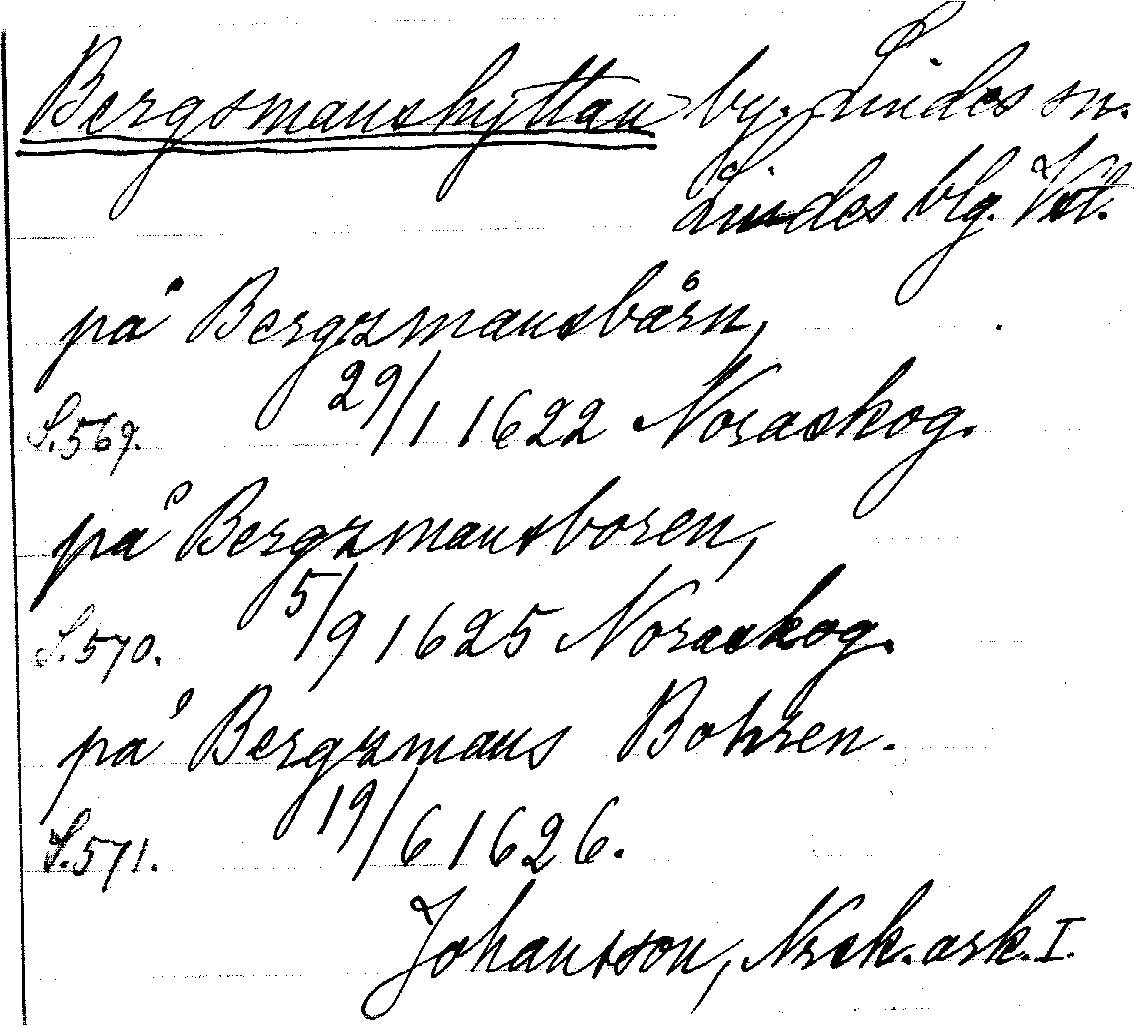 Bergsmanshyttan by. Lindes sn.
Lindes blg. Vstl.
på Bergzmansbårn,
S.569. 29/1 1622 Noraskog.
på Bergzmansboren,
S.570. 5/9 1625 Noraskog.
på Bergzmans Bohren.
S.571. 19/6 1626.
Johansson, Nrsk. ark. I.